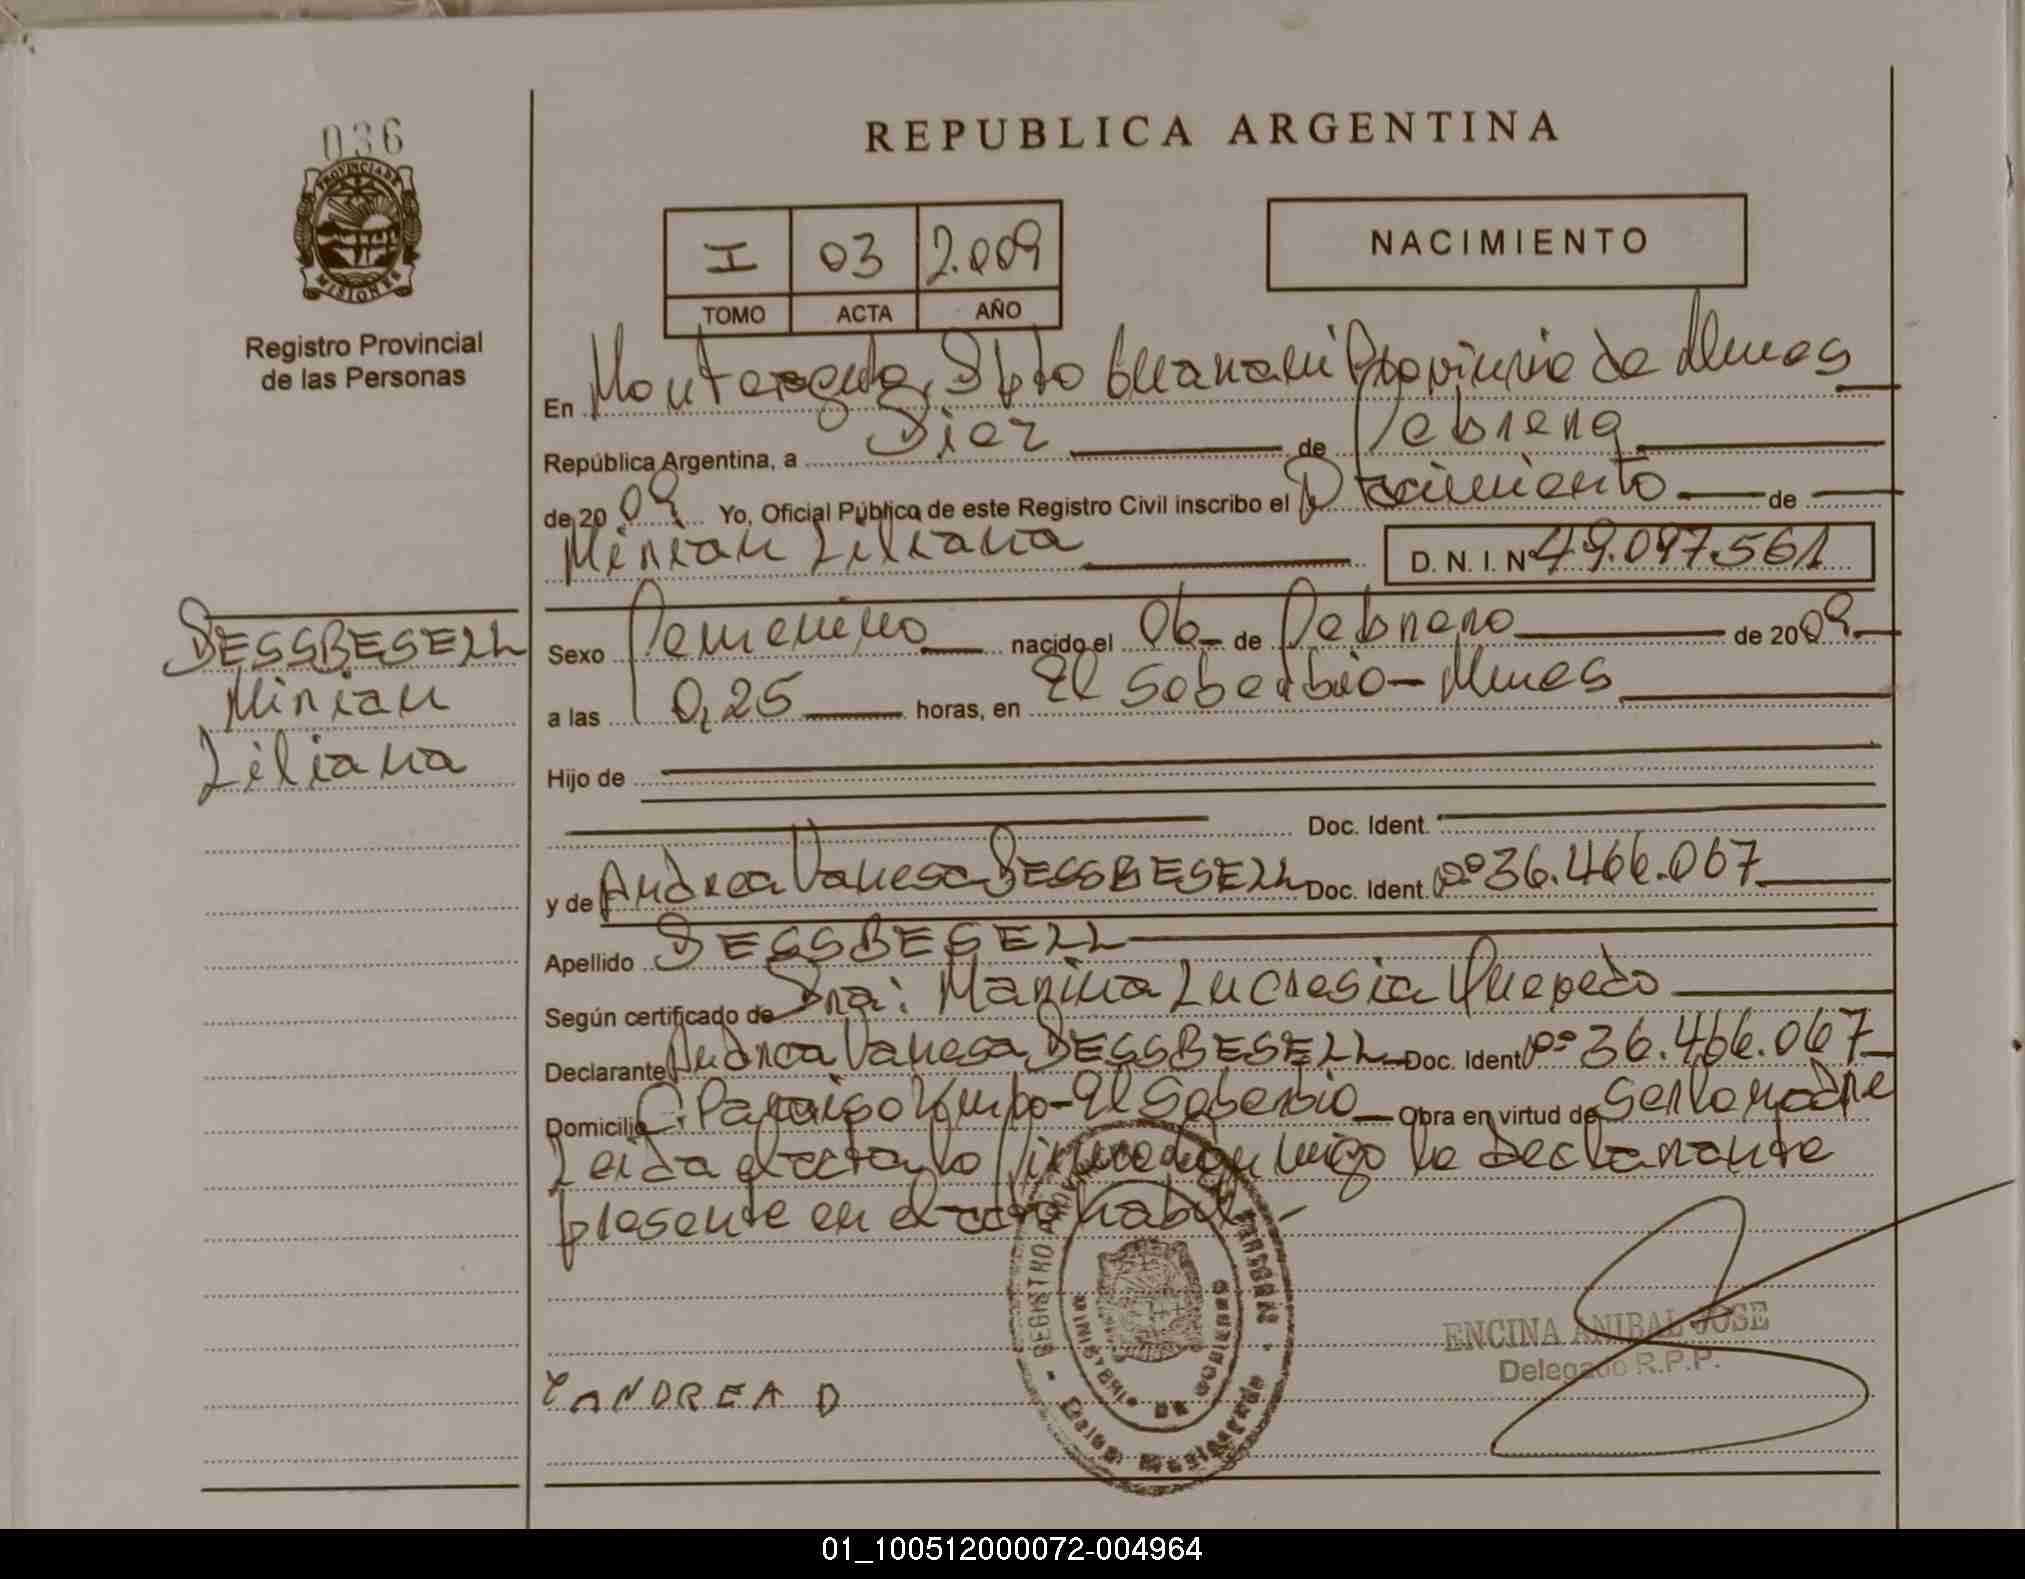 036
PROVINCIA DE
MISIONES
Registro Provincial
de las Personas
REPUBLICA ARGENTINA
I 03 2.009
TOMO ACTA AÑO
NACIMIENTO
En Monteagudo, Dpto Guarani Provincia de Mnes
República Argentina, a Diez de Febrero
de 2009 Yo, Oficial Público de este Registro Civil inscribo el Nacimiento de
Mirian Liliana D. N. I. Nº 49.097.561
DESSBESELL
Mirian
Liliana
Sexo Femenino nacido el 06 de Febrero de 2009
a las 0,25 horas, en El Soberbio - Mnes
Hijo de
Doc. Ident.
y de Andrea Vanesa DESSBESELL Doc. Ident. Nº 36.466.067
Apellido DESSBESELL
Según certificado de Dra: Marina Lucresia Quevedo
Declarante Andrea Vanesa DESSBESELL Doc. Ident Nº 36.466.067
Domicilio C. Paraiso - El Soberbio Obra en virtud de Ser la madre
Leida el acta la firma conmigo la Declarante
presente en el acto habil.-
REGISTRO PERSONAS
MINISTERIO DE GOBIERNO
ENCINA ANIBAL JOSE
Delegado R.P.P.
ANDREA D
01_100512000072-004964